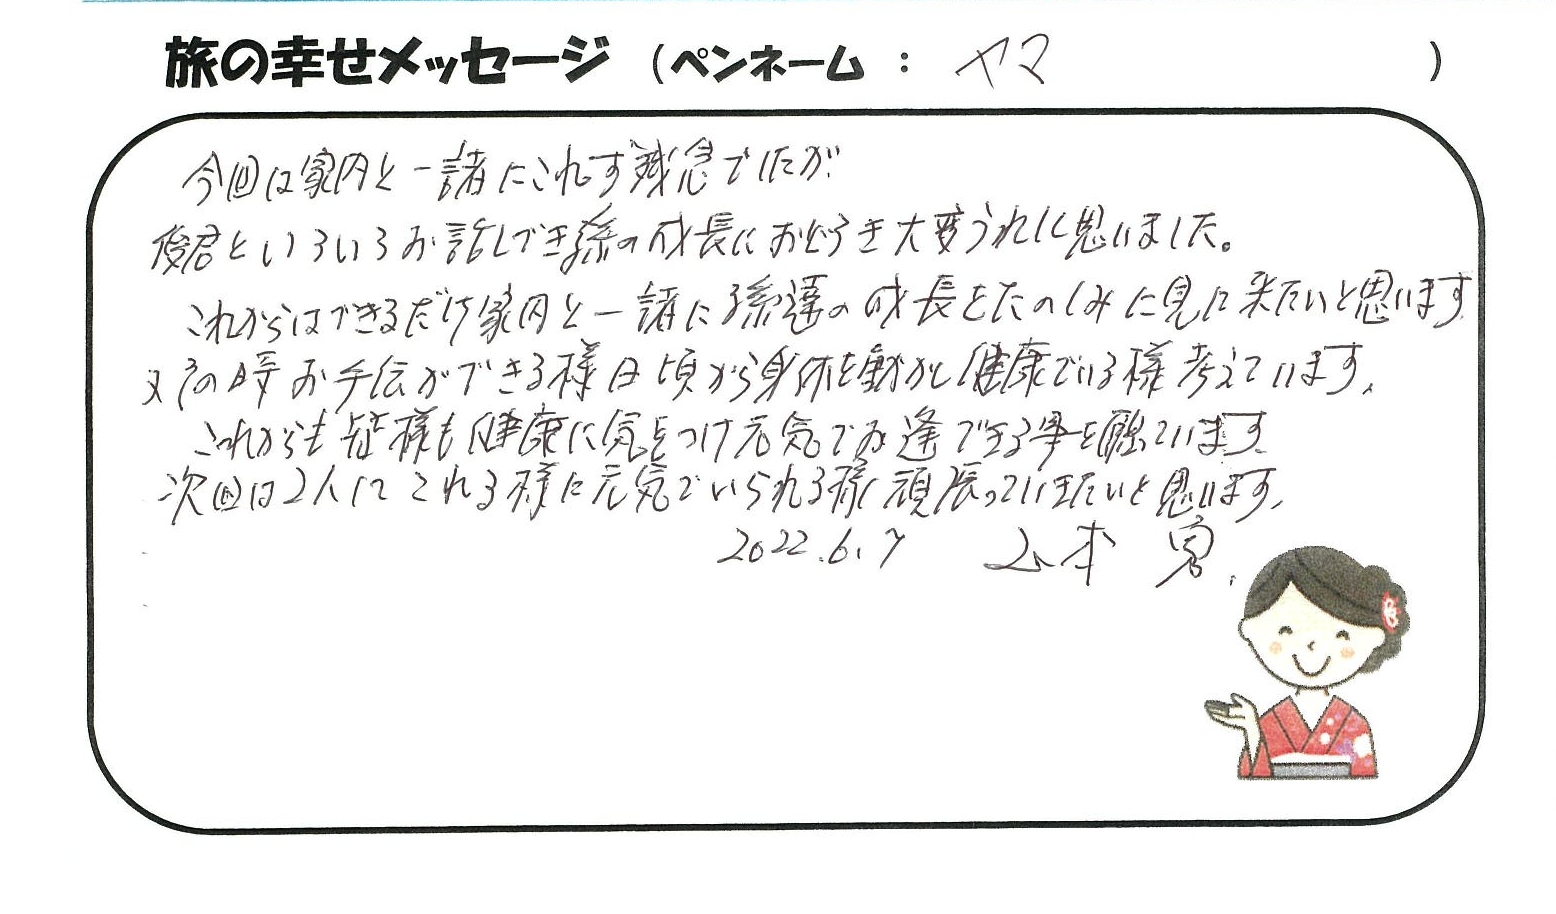 旅の幸せメッセージ (ペンネーム : ヤマ )
今回は家内と一諸にこれず残念でしたが
俊君といろいろお話しでき孫の成長におどろき大変うれしく思いました。
これからはできるだけ家内と一諸に孫達の成長をたのしみに見に来たいと思います
又その時お手伝ができる様日頃から身体を動かし健康でいる様考えています。
これからも皆様も健康に気をつけ元気でお逢できる事を願っています。
次回は2人にてこれる様に元気でいられる様に頑張っていきたいと思います。
2022.6.7 山本